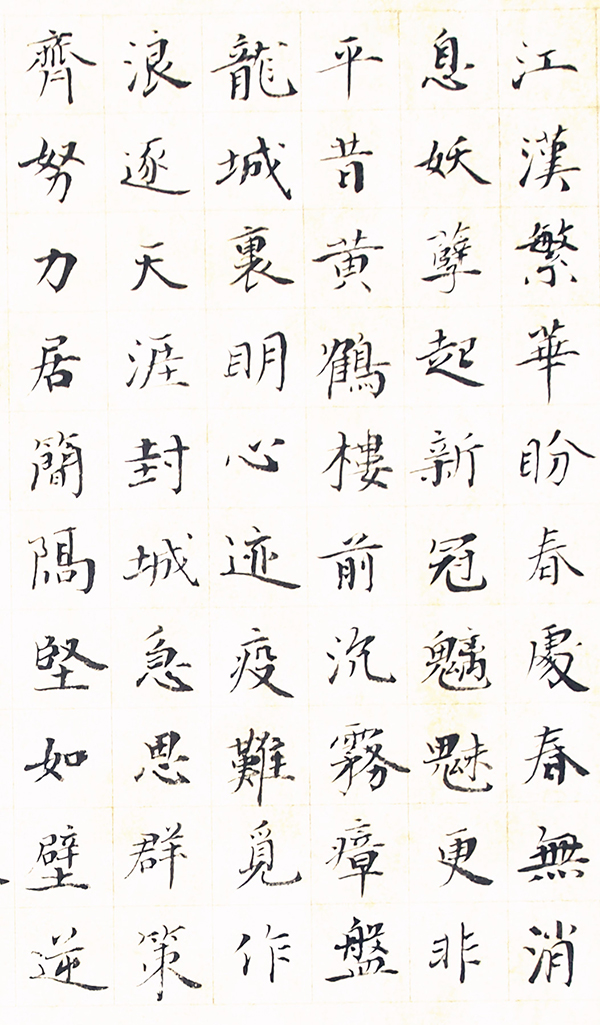 江漢繁華盼春處春無消
息妖孽起新冠魑魅更非
平昔黄鶴樓前沉霧瘴盤
龍城裏明心迹疫難覓作
浪逐天涯封城急思群策
齊努力居簡隔堅如壁逆